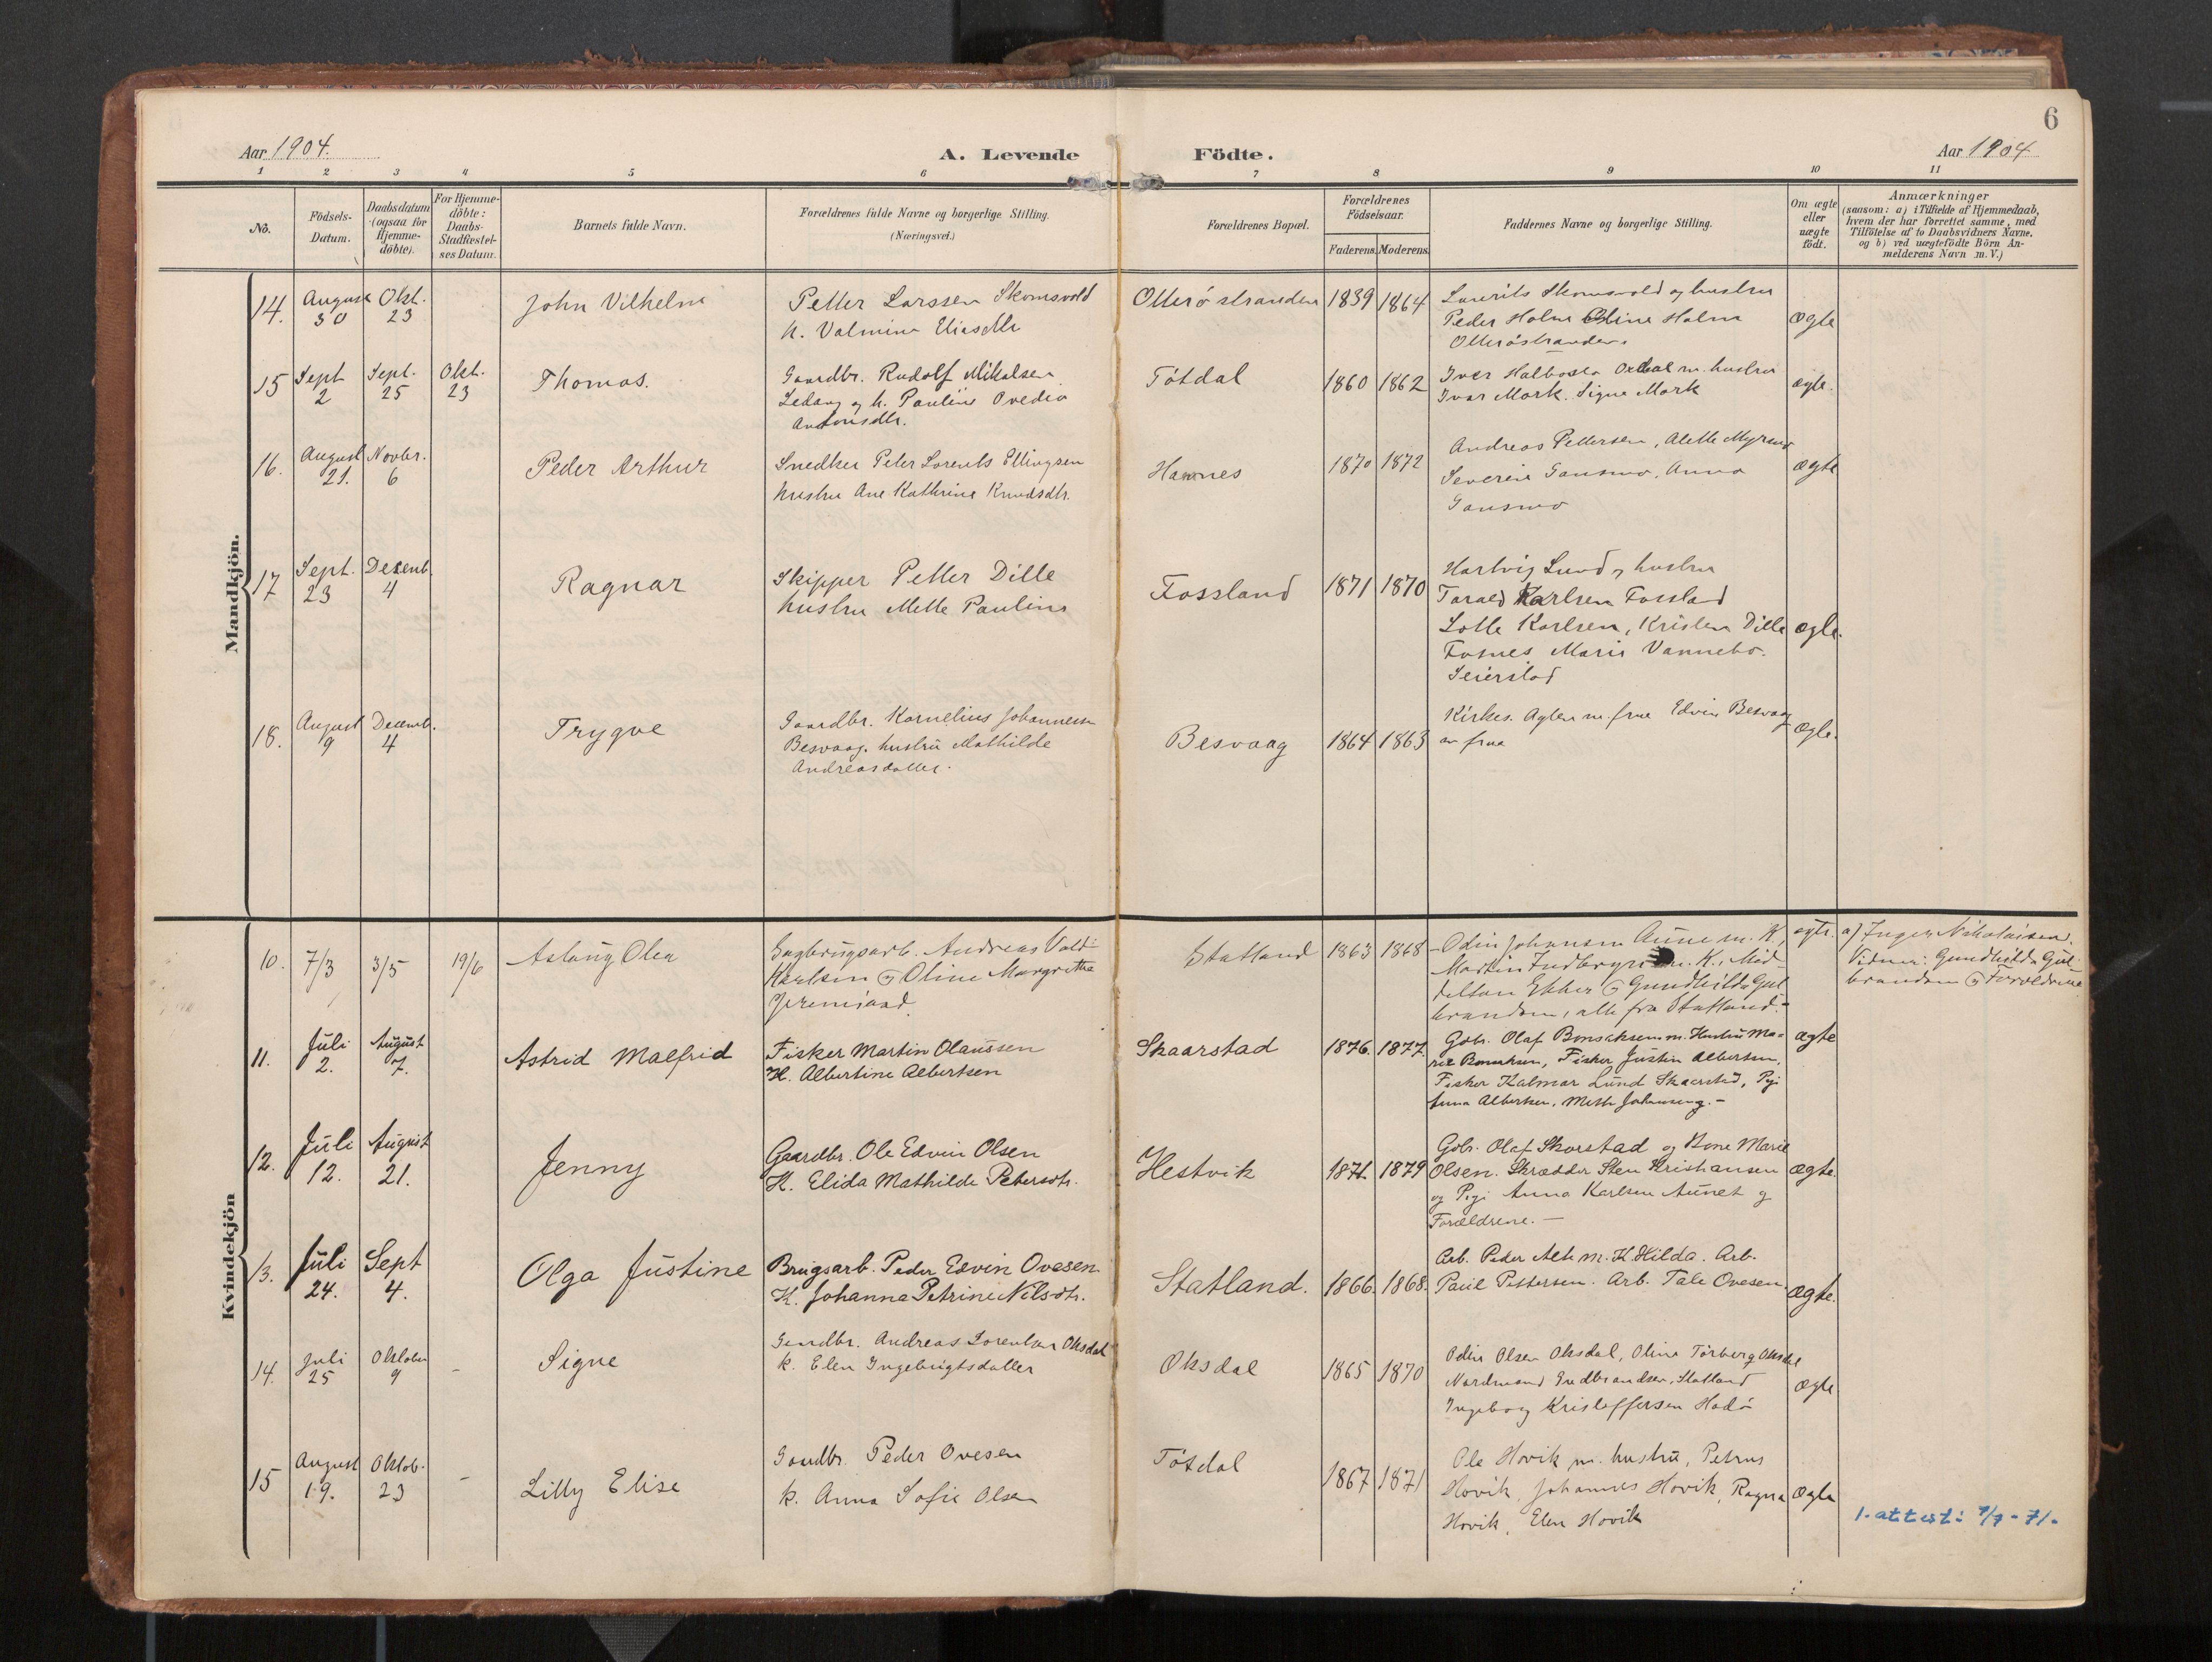 6
Aar 1904.
A. Levende Födte.
Aar 1904
1 2 3 4 5 6 7 8 9 10 11
No.
Födsels-
Datum.
Daabsdatum
(ogsaa for
Hjemme-
döbte).
For Hjemme-
döbte:
Daabs-
Stadfæstel-
ses Datum.
Barnets fulde Navn.
Forældrenes fulde Navne og borgerlige Stilling.
(Næringsvei.)
Forældrenes Bopæl.
Forældrenes
Födselsaar.
Faderens. Moderens.
Faddernes Navne og borgerlige Stilling.
Om ægte
eller
uægte
födt.
Anmærkninger
(saasom: a) i Tilfælde af Hjemmedaab,
hvem der har forrettet samme, med
Tilföielse af to Daabsvidners Navne,
og b) ved uægtefödte Börn An-
melderens Navn m. V.)
Mandkjön.
14.
August
30
Okt.
23
John Vilhelm
Petter Larssen Skomsvold
h. Valmine Eliasdtr
Otterøstranden
1839 1864
Laurits Skomsvold og hustru
Peder Holm Oline Holm
Otterøstranden
ægte
15
Sept
2
Sept.
25
Okt.
23
Thomas.
Gaardbr. Rudolf Mikalsen
Ledang og h. Pauline Ovedia
Antonsdtr.
Tøtdal
1860 1862
Iver m. hustru
Ivar Mork. Signe Mork
ægte.
16.
August
21.
Novbr.
6
Peder Arthur
Snedker Peter Lorents Ellingsen
hustru Ane Kathrine Knudsdtr.
Hamnes
1870 1872
Andreas Pettersen, Alette Myrmo
Severin Gansmo, Anna
Gansmo
ægte
17
Sept.
23
Desemb.
4
Ragnar
Skipper Petter Dille
hustru Mette Pauline
Fossland
1871 1870
Hartvig Lund og hustru
Torald Karlsen Fossland
Lotte Karlsen, Kristen Dille
Fosnes Marie Vannebo.
Seierstad
ægte.
18.
August
9
Decemb.
4
Trygve
Gaardbr. Kornelius Johannesen
Besvaag. hustru Mathilde
Andreasdatter.
Besvaag
1864 1863
Kirkes. Aglen m. frue Edvin Besvaag
av frue
ægte.
Kvindekjön
10.
7/3
3/5
19/6
Aslaug Olea
Sagbrugsarb. Andreas Vald.
Karlsen og Oline Margrethe
Statland
1863 1868
Odin Johansen Aune m. K.,
Martin m. K.
Ebber og Gundhilda Gul
brandsen, alle fra Statland.
ægte.
a) Inger Nikolaisen.
Vidner: Gundhilda Gul-
brandsen og Forældrene
11.
Juli
2.
August
7.
Astrid Malfrid
Fisker Martin Olaussen
H. Albertine Albertsen
Skaarstad
1876. 1877.
Gbr. Olaf Bonsaksen m. Hustru Ma-
rie Bonsaksen, Fisker Justin Albertsen,
Fisker Kalmar Lund Skaarstad, Pigi
Anna Albertsen, Mette Johansen.
ægte
12.
Juli
12.
August
21.
Jenny
Gaardbr. Ole Edvin Olsen
H. Elida Mathilde Petersdtr.
Hestvik
1871 1879
Gbr. Olaf Skorstad og Kone Marie
Olsen. Skrædder Sten Kristiansen
og Pigi Anna Karlsen Aunet og
Forældrene.
ægte.
13.
Juli
24.
Sept
4.
Olga Justine
Brugsarb. Peder Edvin Ovesen
K. Johanna Petrine Nilsdtr.
Statland.
1866. 1868.
Arb. Peder m. K. Hilda. Arb.
Paul Pettersen. Arb. Tale Ovesen
ægte.
14.
Juli
25
Oktober
9
-
Signe
Gaardbr. Andreas Lorentsen Oksdal
k. Elen Ingebrigtsdatter
Oksdal
1865 1870
Odin Olsen Oksdal, Oline Torberg Oksdal
Nordmand Gudbrandsen, Statland
Ingeborg Kristoffersen Hodø
ægte
15
August
19.
Oktob.
23
-
Lilly Elise
Gaardbr. Peder Ovesen
k. Anna Sofie Olsen
Tøtdal
1867 1871
Ole Hovik m. hustru, Petrus
Hovik, Johannes Hovik, Ragna
Hovik, Elen Hovik
ægte
1. attest: 7/7-71.